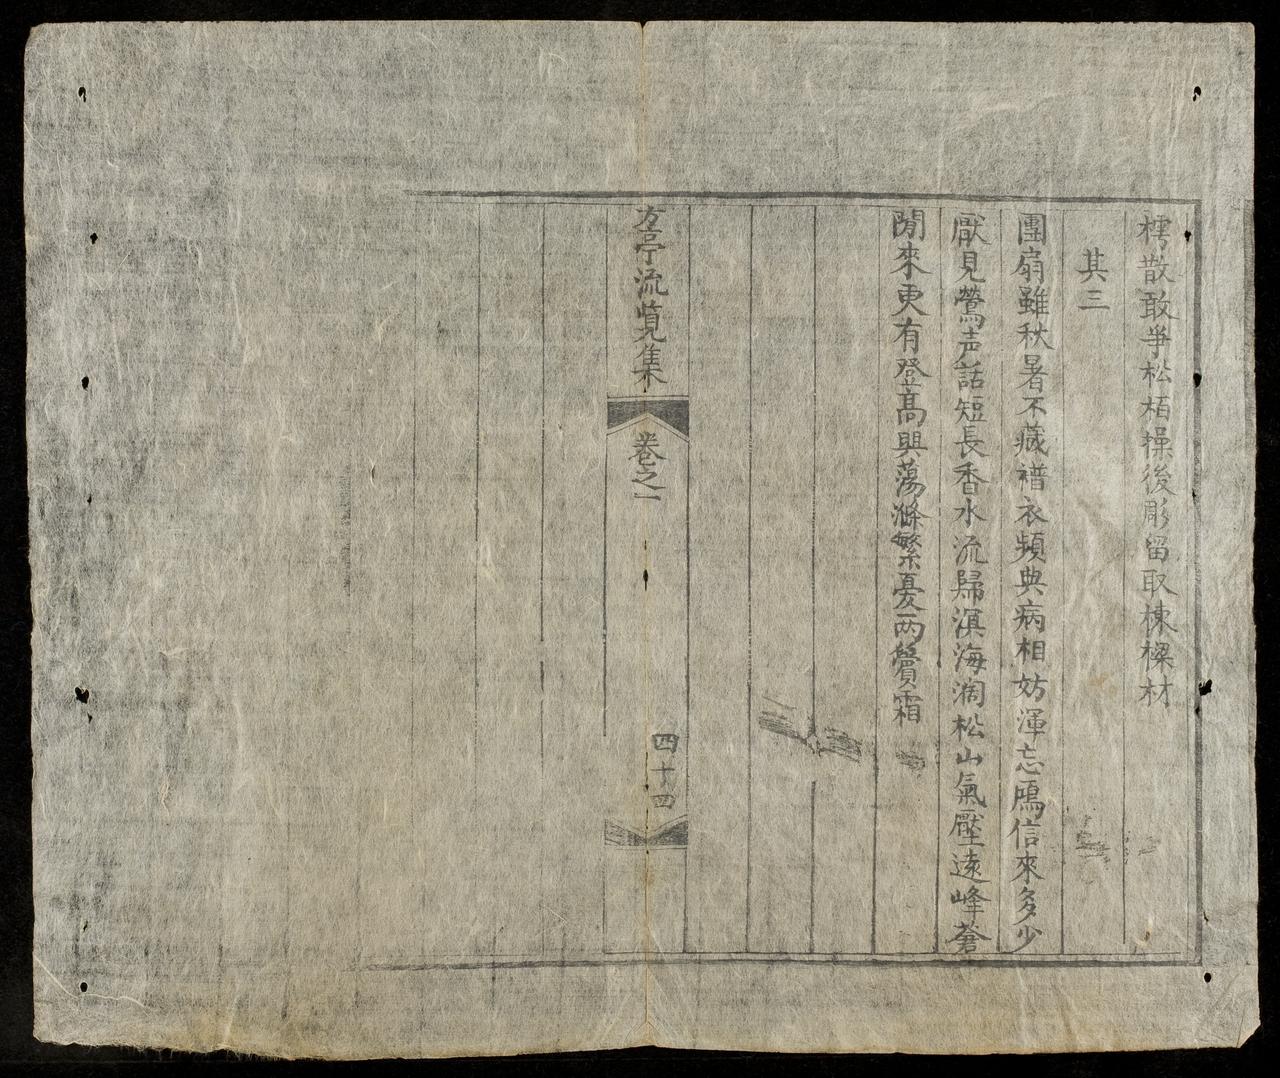 樗散敢爭松栢操後彫留取棟樑材
其三
團扇雖秋暑不藏襟衣頻典病相妨渾忘鴈信來多少
厭見鶯声話短長香水流歸溟海濶松山氣壓遠峰蒼
閒來更有登高興蕩滌繁憂两鬢霜
方亭流覽集
卷之一
四十四